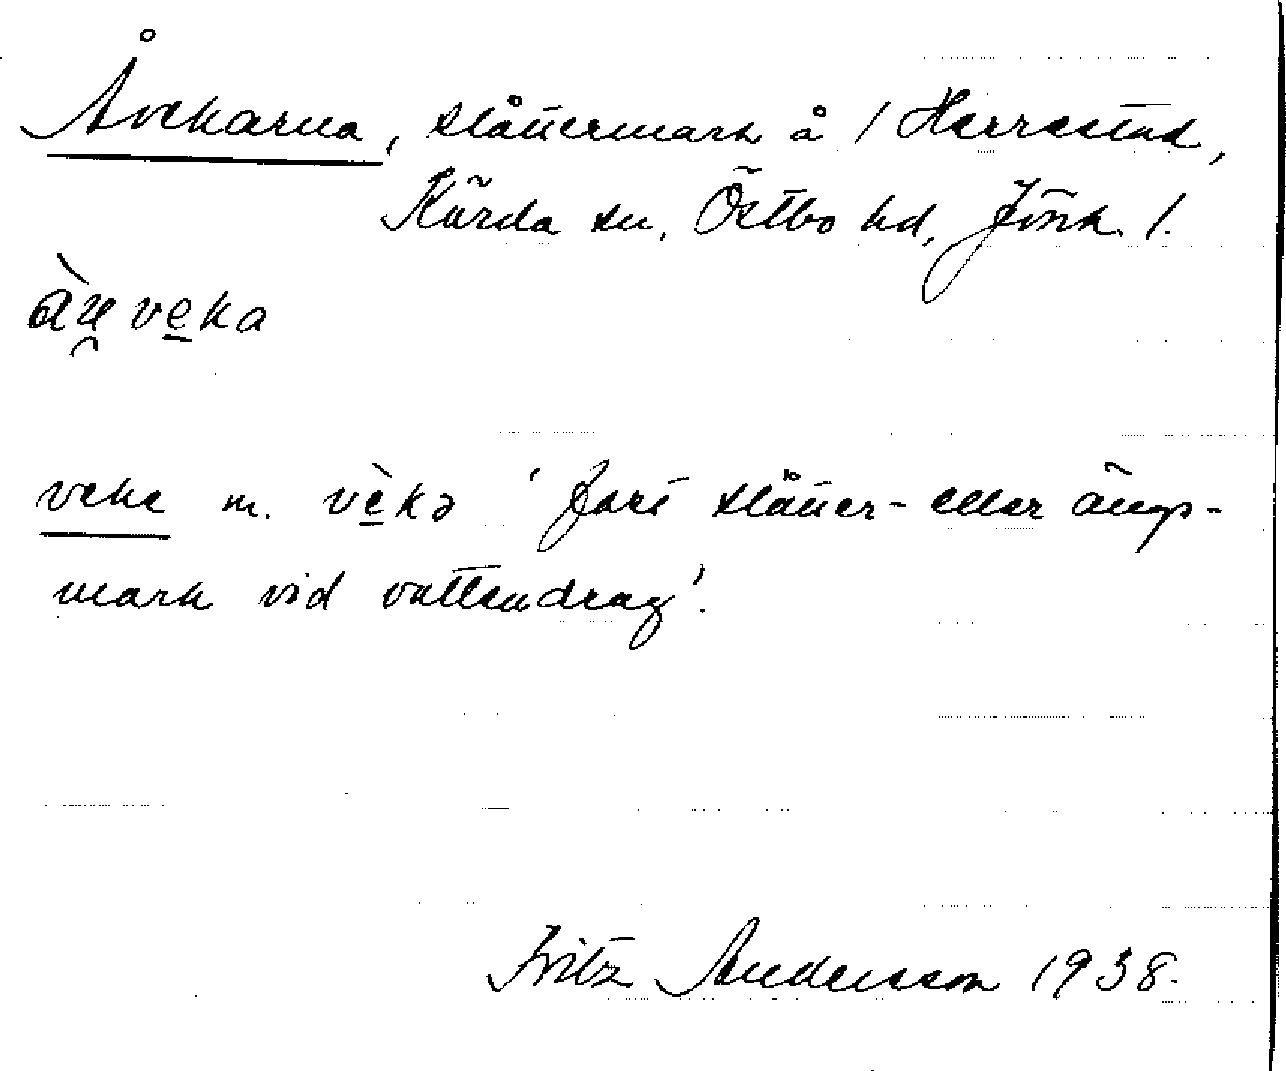 Åvekarna, slåttermark å 1 Herrestad,
Kärda sn, Östbo hd, Jönk. l.
veka
veke m. vèkə 'fört slåtter- eller ängs-
mark vid vattendrag'.
Fritz Andersson 1938.